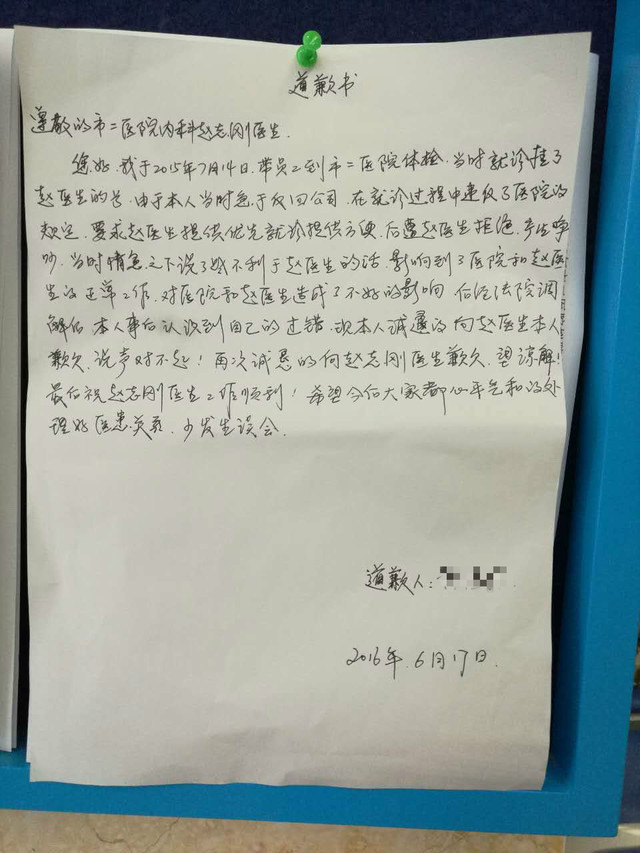 道歉书
尊敬的市二医院内科赵志刚医生.
您好, 我于2015年7月14日. 带员工到市二医院体检. 当时就诊挂了
赵医生的号. 由于本人当时急于反回公司. 在就诊过程中违反了医院的
规定. 要求赵医生提供优先就诊提供方便. 后遭赵医生拒绝. 产生争
吵. 当时情急之下说了些不利于赵医生的话. 影响到了医院和赵医
生的正常工作. 对医院和赵医生造成了不好的影响 后经法院调
解后 本人事后认识到自己的过错. 现本人诚恳的向赵医生本人
歉久. 说声对不起! 再次诚恳的向赵志刚医生歉久. 望谅解!
最后祝赵志刚医生工作顺利! 希望今后大家都心平气和的处
理好医患关系. 少发生误会.
道歉人:
2016年. 6月17日.